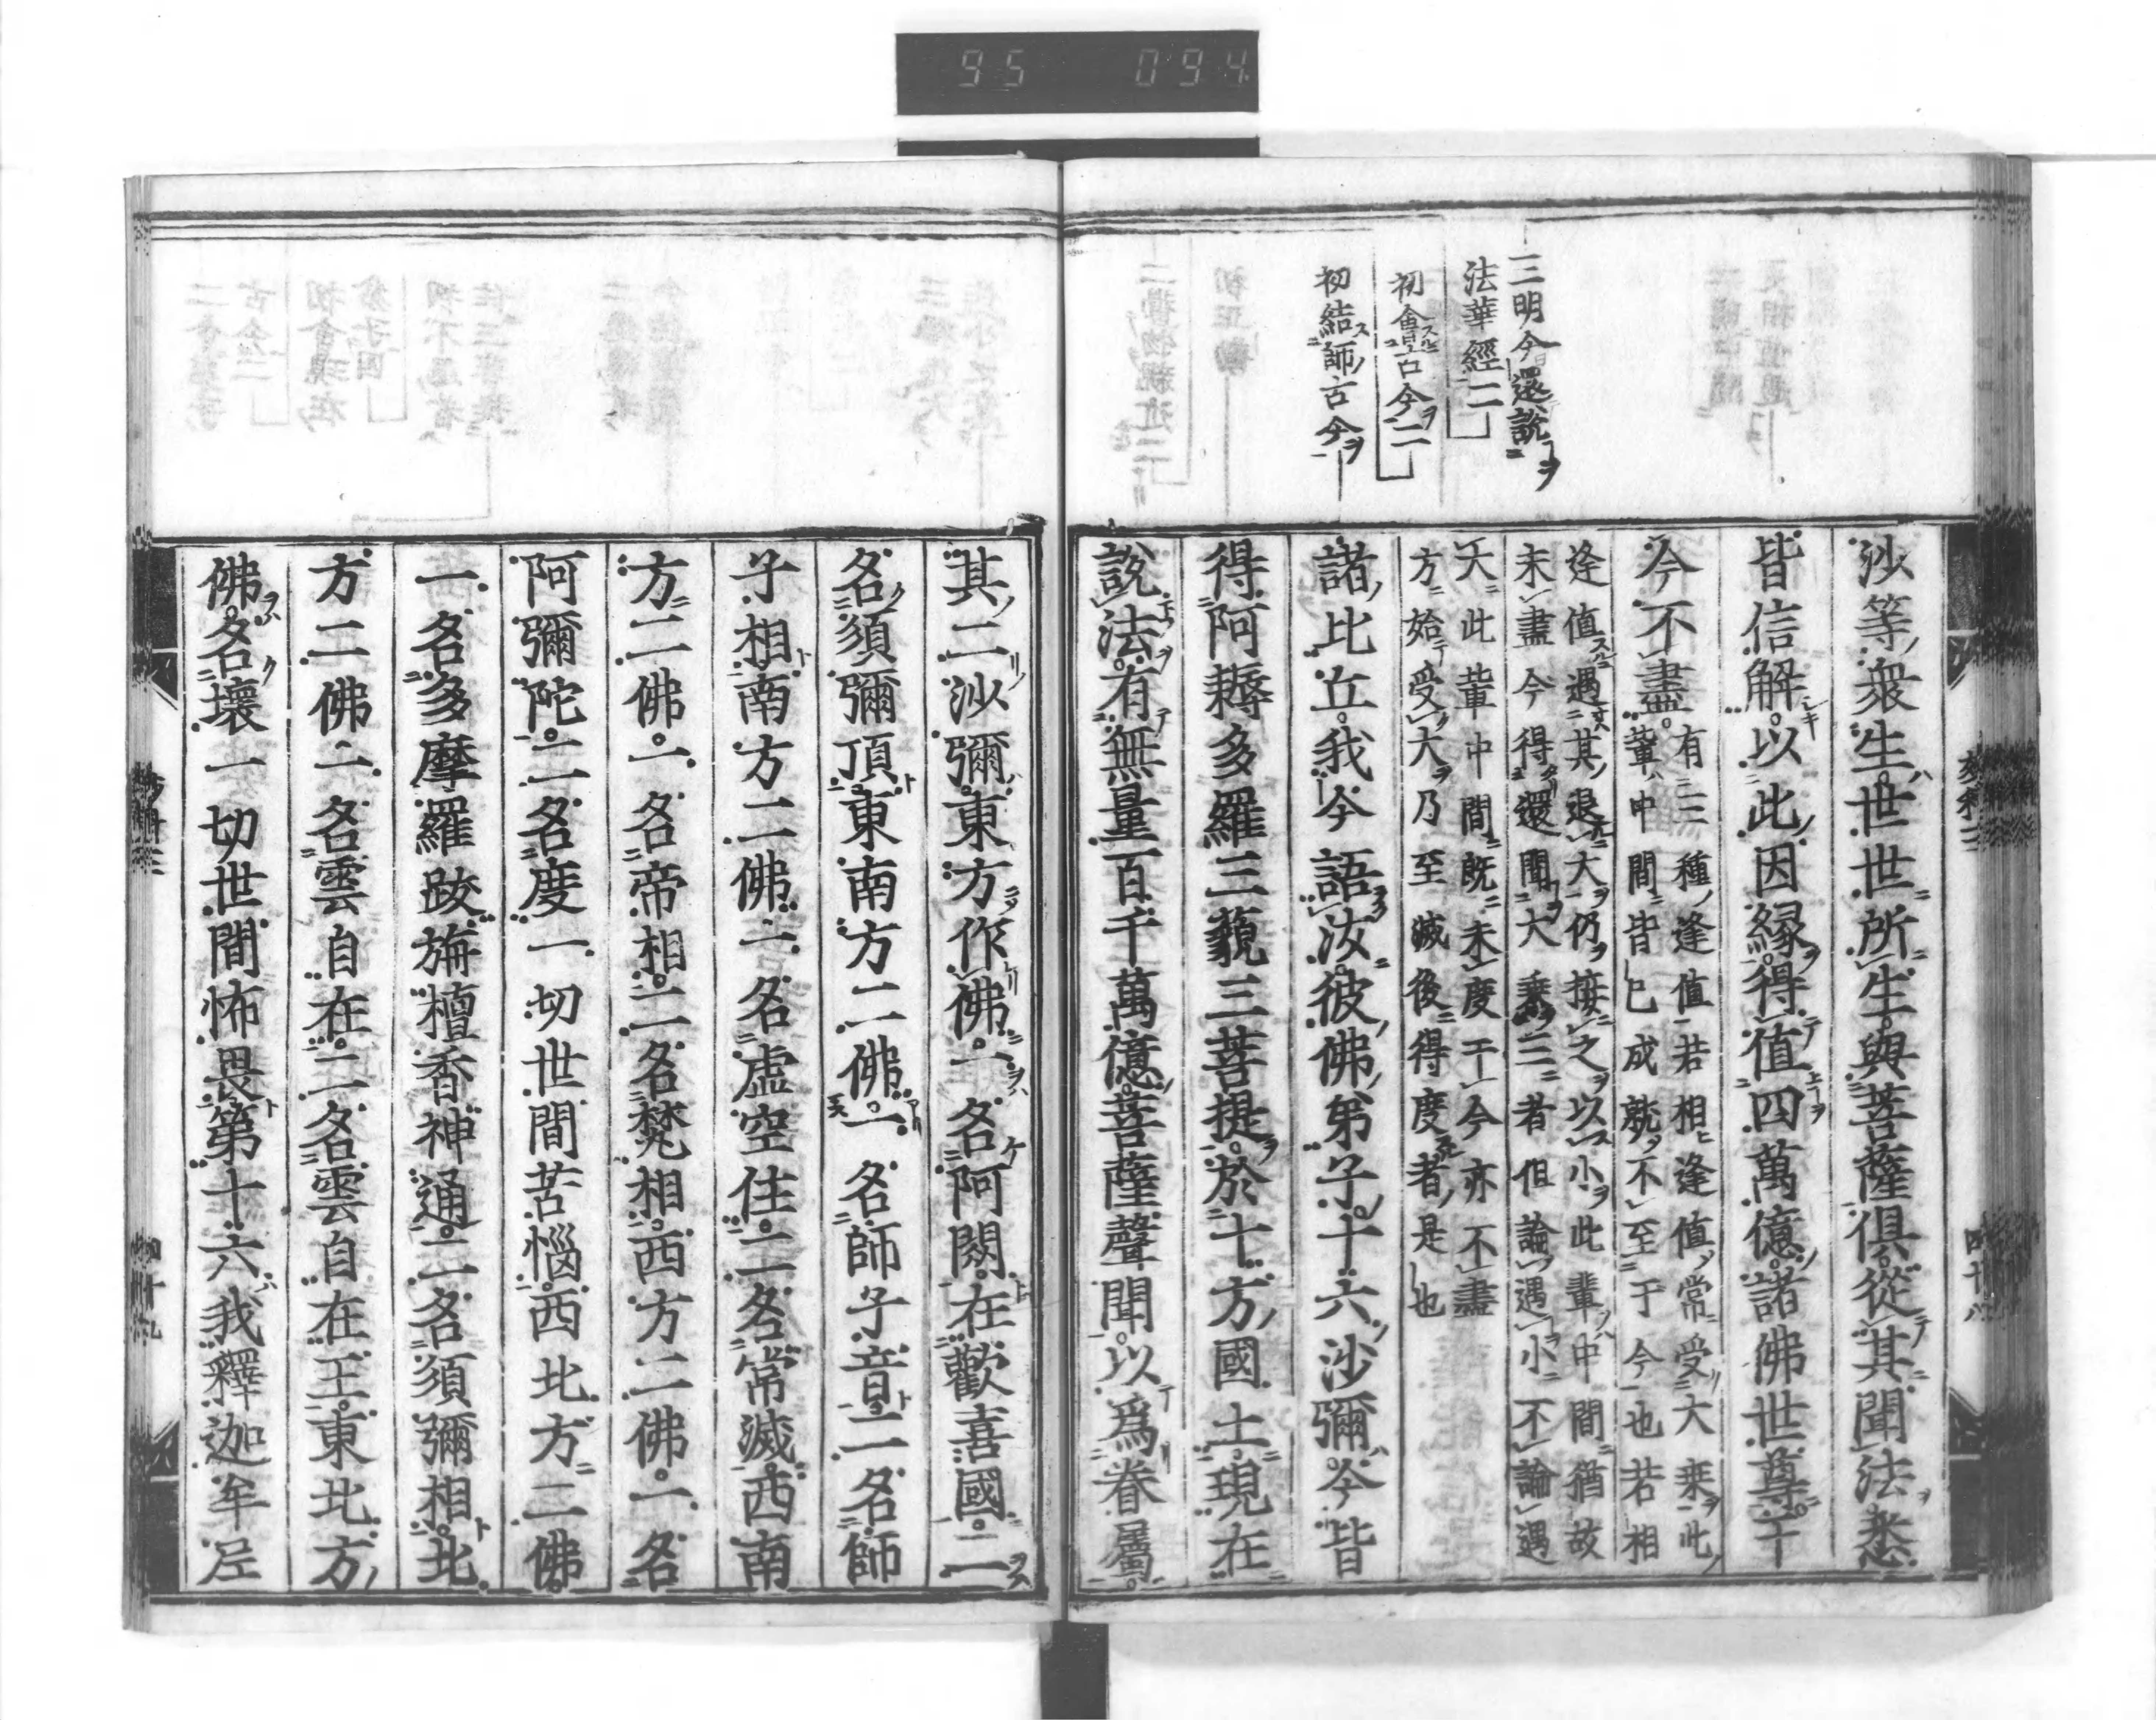 95 094
三明今還說
法華經二
初會古今二
初結師古今
沙等衆生世世所生與菩薩俱從其聞法悉
皆信解以此因緣得值四萬億諸佛世尊于
今不盡
有三種逢值若相逢值常受大乘此
輩中間皆已成就不至于今也若相
逢值遇其退大仍接之以小此輩中間猶故
未盡今得還聞大乘三者但論遇小不論遇
大此輩中間既未度于今亦不盡
方始受大乃至滅後得度者是也
諸比丘我今語汝彼佛弟子十六沙彌今皆
得阿耨多羅三藐三菩提於十方國土現在
說法有無量百千萬億菩薩聲聞以爲眷屬
四十八
其二沙彌東方作佛一名阿閦在歡喜國二
名須彌頂東南方二佛一名師子音二名師
子相南方二佛一名虛空住二名常滅西南
方二佛一名帝相二名梵相西方二佛一名
阿彌陀二名度一切世間苦惱西北方二佛
一名多摩羅跋旃檀香神通二名須彌相北
方二佛一名雲自在二名雲自在王東北方
佛名壞一切世間怖畏第十六我釋迦牟尼
四十九